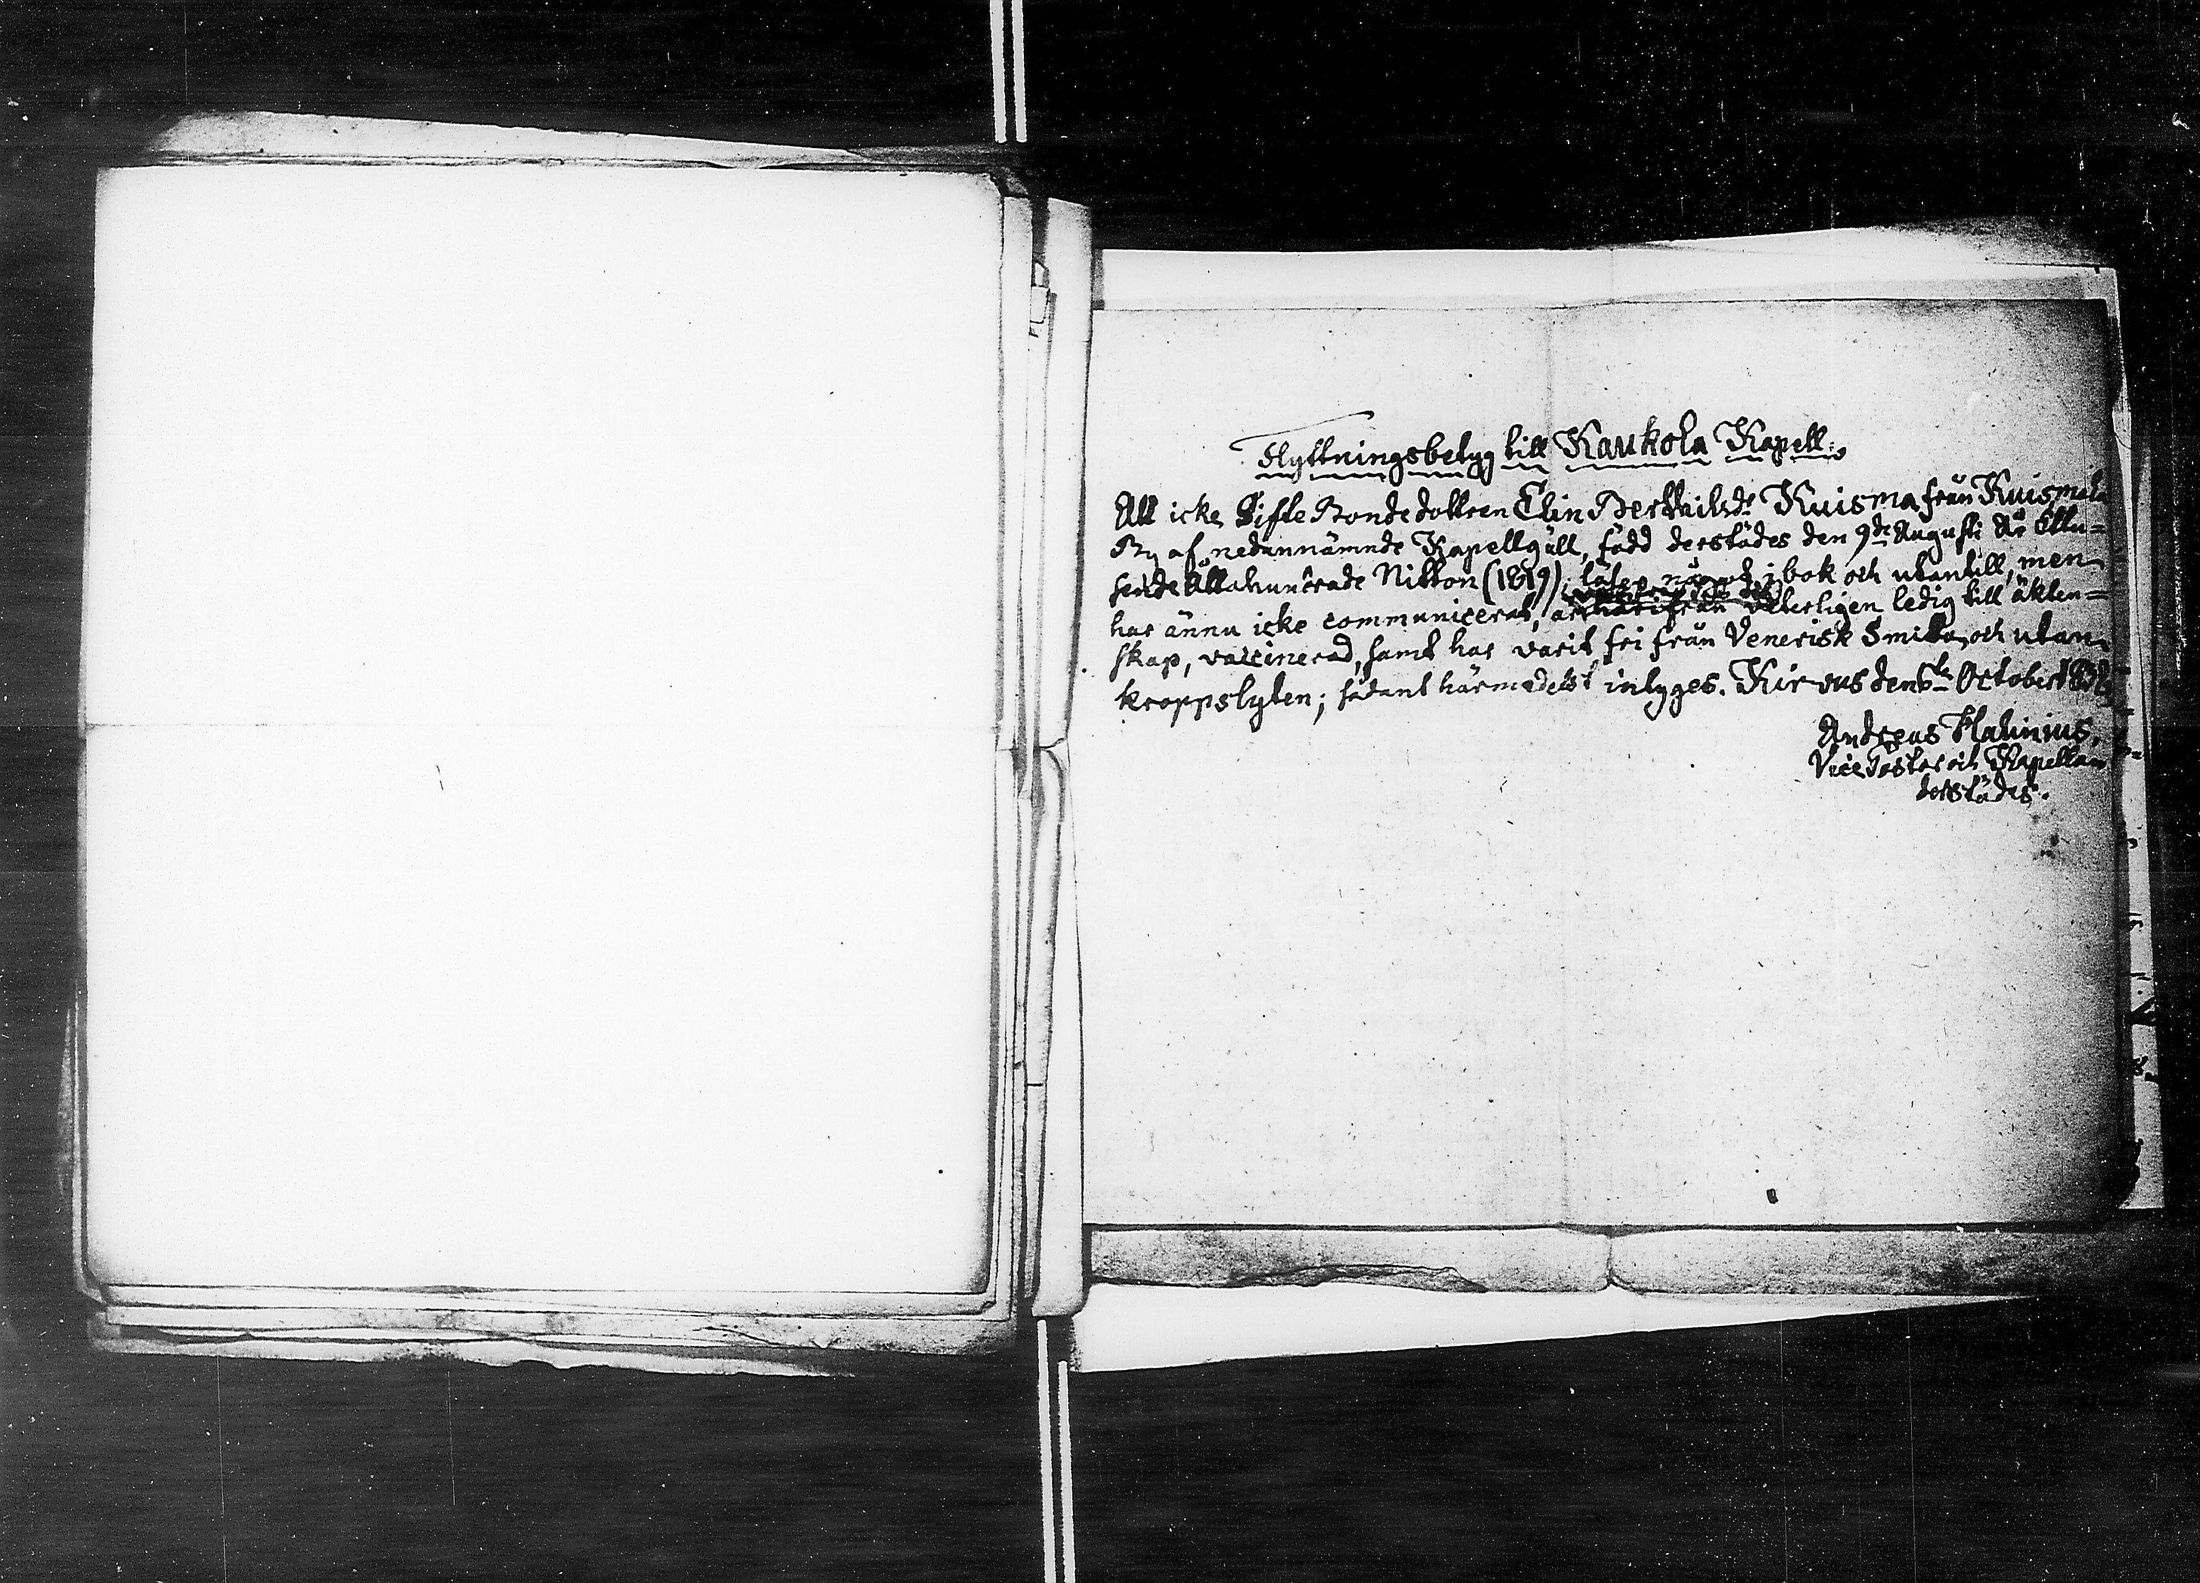 Flyttningsbetyg till Kaukola Kapell.
Att icke Gifte Bondedottren Elin Bertheilsdr Kuisma från Kuismala
By af nedannämnde Kapellgäll, född derstädes den 9de Augusti År Ettu=
sende Åttahundrade Nitton (1819), läser något i bok och utantill, men
har ännu icke communicerat, är härifrån veterligen ledig till äkten=
skap, vaccinerad, samt har varit fri från Venerisk Smitta och utan
kroppslyten; sådant härmedelst intyges. Kirvus den 6te October
Andreas Hatinius,
Vice Pastor och Kapellan
derstädes.